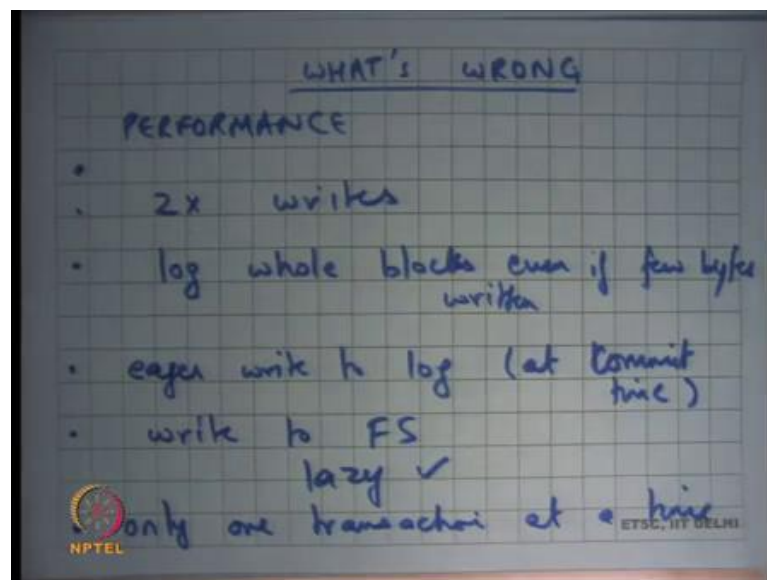 WHAT's WRONG
PERFORMANCE
•
• 2x writes
• log whole blocks even if few bytes
written
• eager write to log (at Commit
time)
• write to FS
lazy ✓
• only one transaction at a time
ETSC, IIT DELHI
NPTEL